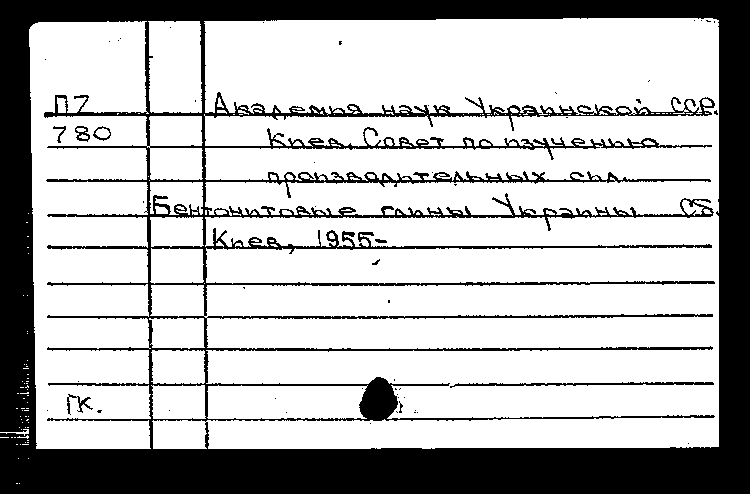 П7 Академия наук Украинской ССР.
780 Киев. Совет по изучению
производительных сил.
Бентонитовые глины Украины Сб.
Киев, 1955-
ГК.